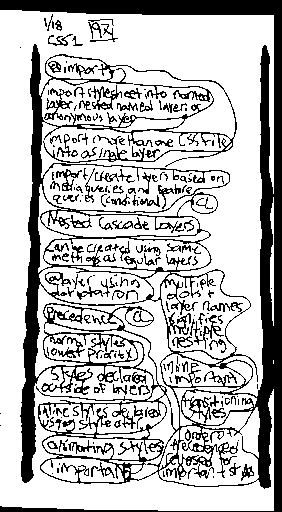 1/18
CSS1
@import
import stylesheet into named
layer, nested named layer, or
anonymous layer
import more than one CSS file
into a single layer
import/create layers based on
media queries and feature
queries (conditional)
CL
Nested Cascade Layers
can be created using same
methods as regular layers
@layer using
dot notation
multiple
dots in
layer names
signifies
multiple
nesting
Precedence
CL
normal styles
lowest priority
styles declared
outside of layers
inline styles declared
using style attr.
animating styles
!important
inline
important
transitioning
styles
order of
precedence
reversed for
important styles